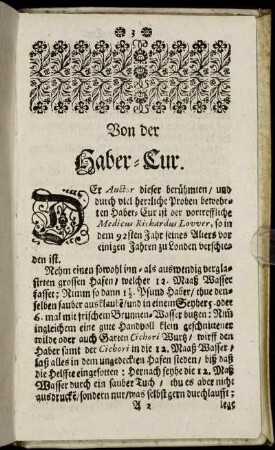 3
Von der
Haber-Cur.
DEr Auctor dieser berühmten / und
durch viel herrliche Proben bewehr-
ten Haber-Cur ist der vortreffliche
Medicus Richardus Lovver, so in
dem 92sten Jahr seines Alters vor
einigen Jahren zu Londen verschie-
den ist.
Nehm einen sowohl inn- als auswendig vergla-
sirten grossen Hafen / welcher 12. Maaß Wasser
fasset; Nimm so dann Pfund Haber / thue den-
selben sauber ausklauben / und in einem Seyher 5. oder
6. mal mit frischem Brunnen-Wasser butzen: Nim
ingleichem eine gute Handvoll klein geschnittener
wilde oder auch Garten Cichori Wurtz / wirff den
Haber samt der Cichori in die 12. Maaß Wasser /
laß alles in dem ungedeckten Hafen sieden / biß daß
die Helffte eingesotten: Hernach seyhe die 12. Maß
Wasser durch ein sauber Tuch / thu es aber nicht
ausdrucken / sondern nur / was selbst gern durchlaufft:
A 2 lege